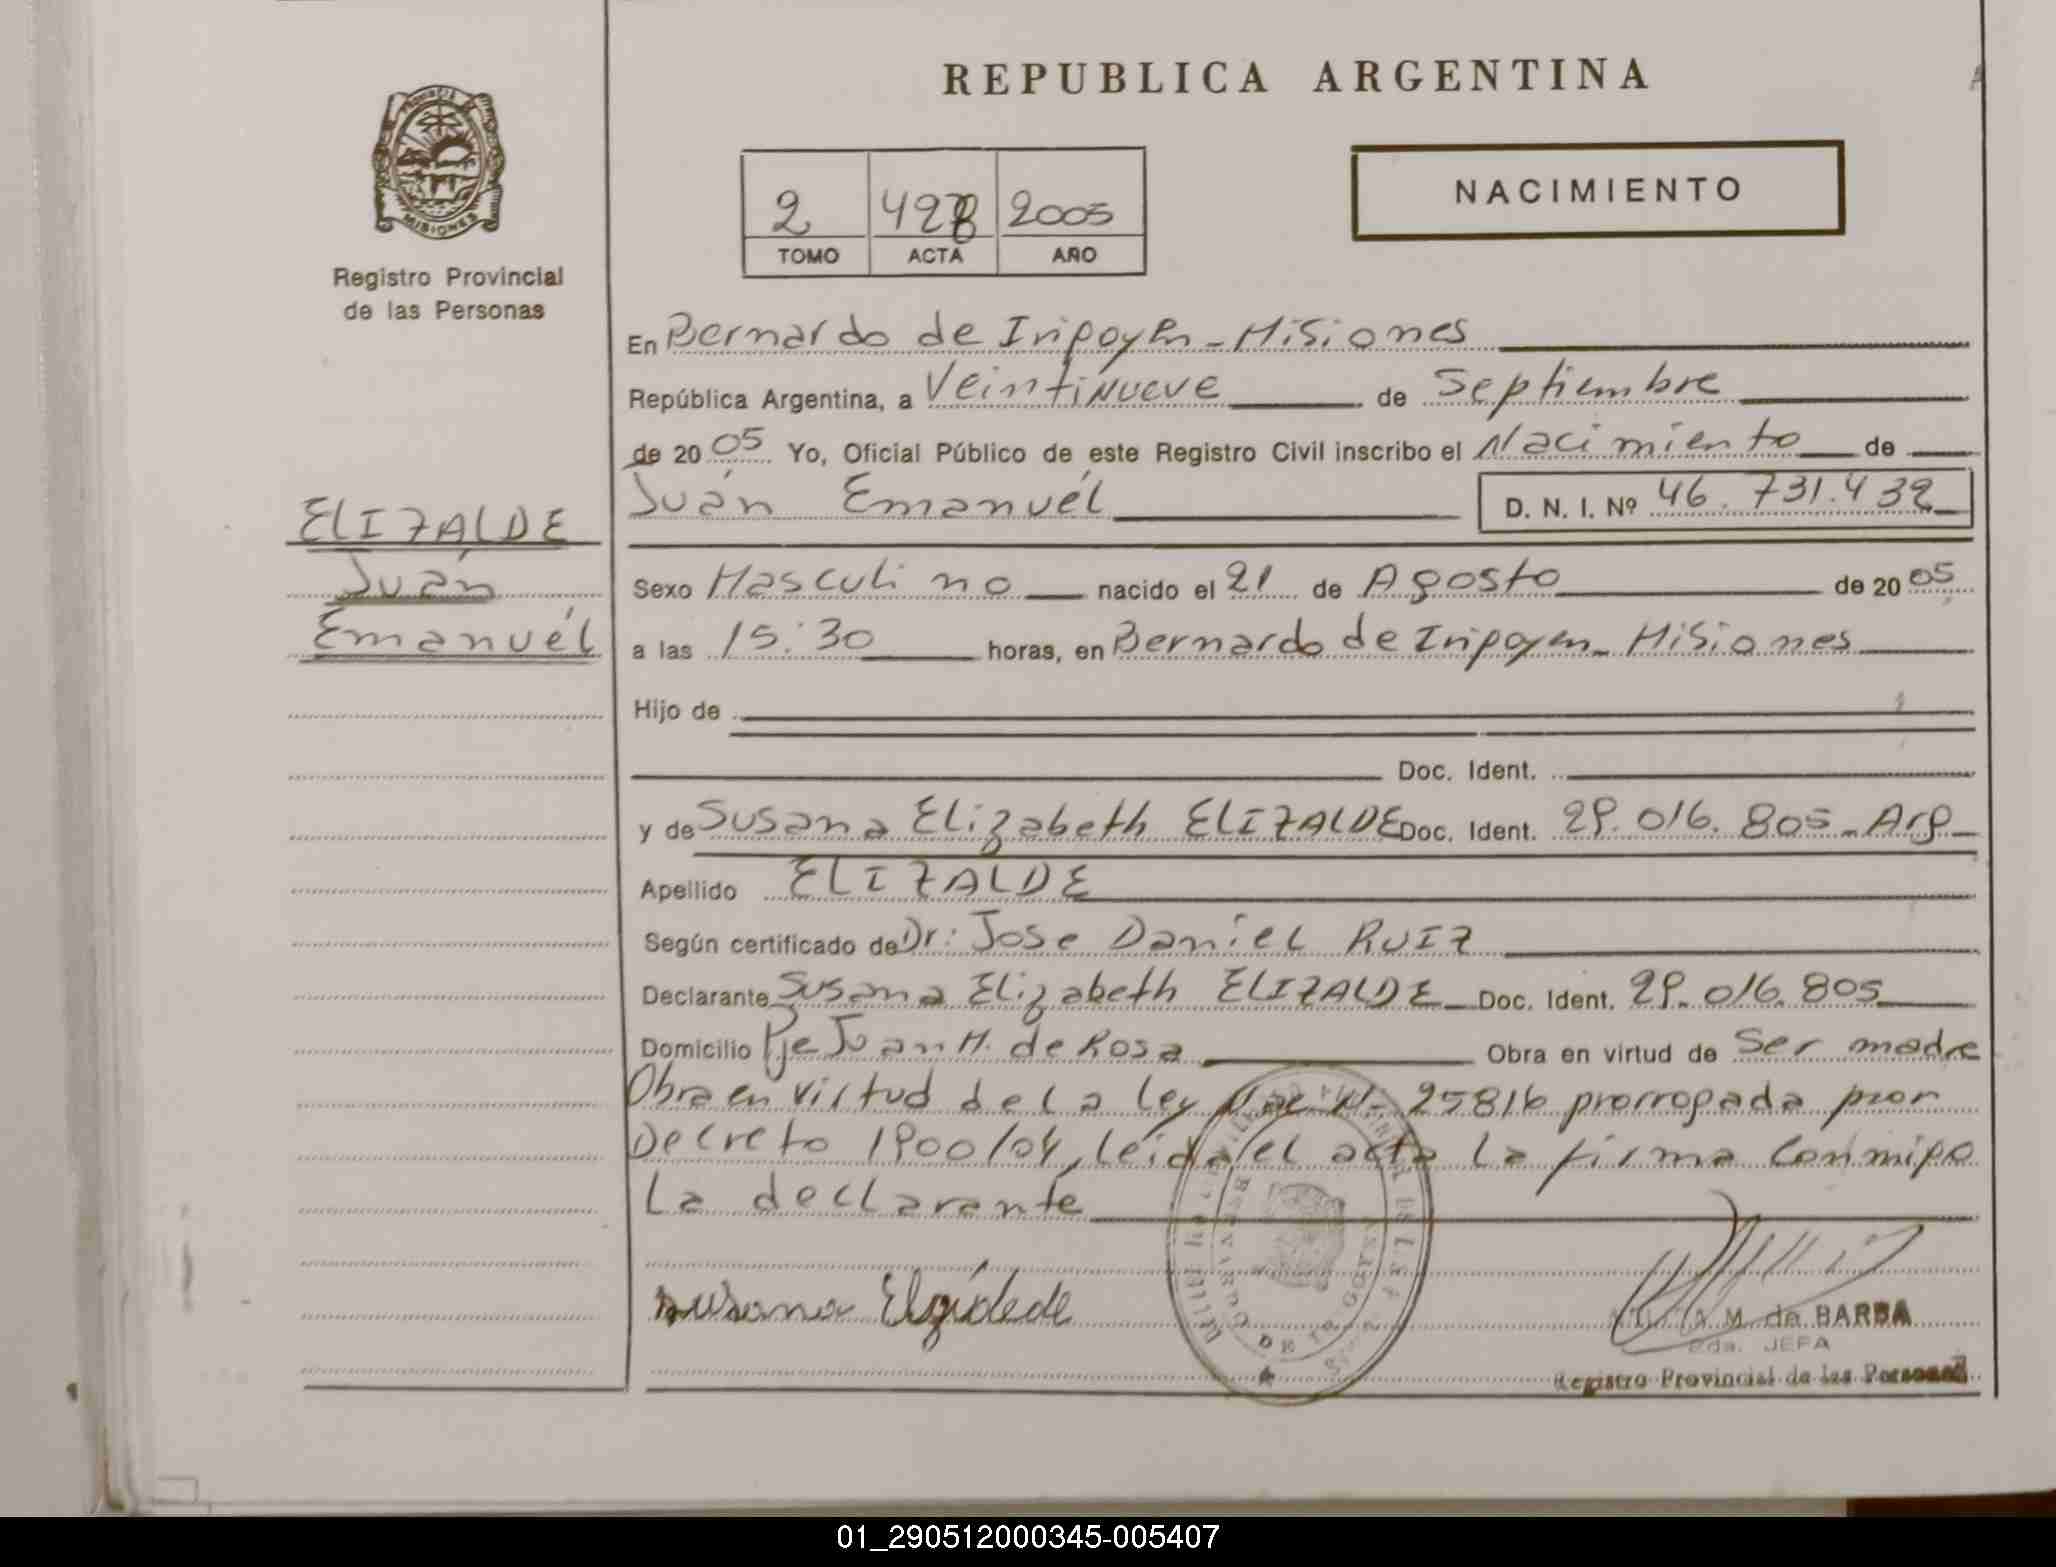 REPUBLICA ARGENTINA
PROVINCIA DE
MISIONES
Registro Provincial
de las Personas
2 428 2005
TOMO ACTA AÑO
NACIMIENTO
ELIZALDE
Juán
Emanuél
En Bernardo de Irigoyen - Misiones
República Argentina, a Veintinueve de Septiembre
de 2005 Yo, Oficial Público de este Registro Civil inscribo el Nacimiento de
Juán Emanuél D. N. I. Nº 46.731.432
Sexo Masculino nacido el 21 de Agosto de 2005
a las 15:30 horas, en Bernardo de Irigoyen - Misiones
Hijo de
Doc. Ident.
y de Susana Elizabeth ELIZALDE Doc. Ident. 29.016.805 - Arg
Apellido ELIZALDE
Según certificado de Dr: Jose Daniel RUIZ
Declarante Susana Elizabeth ELIZALDE Doc. Ident. 29.016.805
Domicilio Pje Juan M. de Rosa Obra en virtud de Ser madre
Obra en virtud de la ley Nac Nº 25816 prorrogada por
Decreto 1900/04, leída el acta la firma Conmigo
la declarante
Susana
M. de BARBA
JEFA
Registro Provincial de las Personas
BERNARDO DE IRIGOYEN
01_290512000345-005407